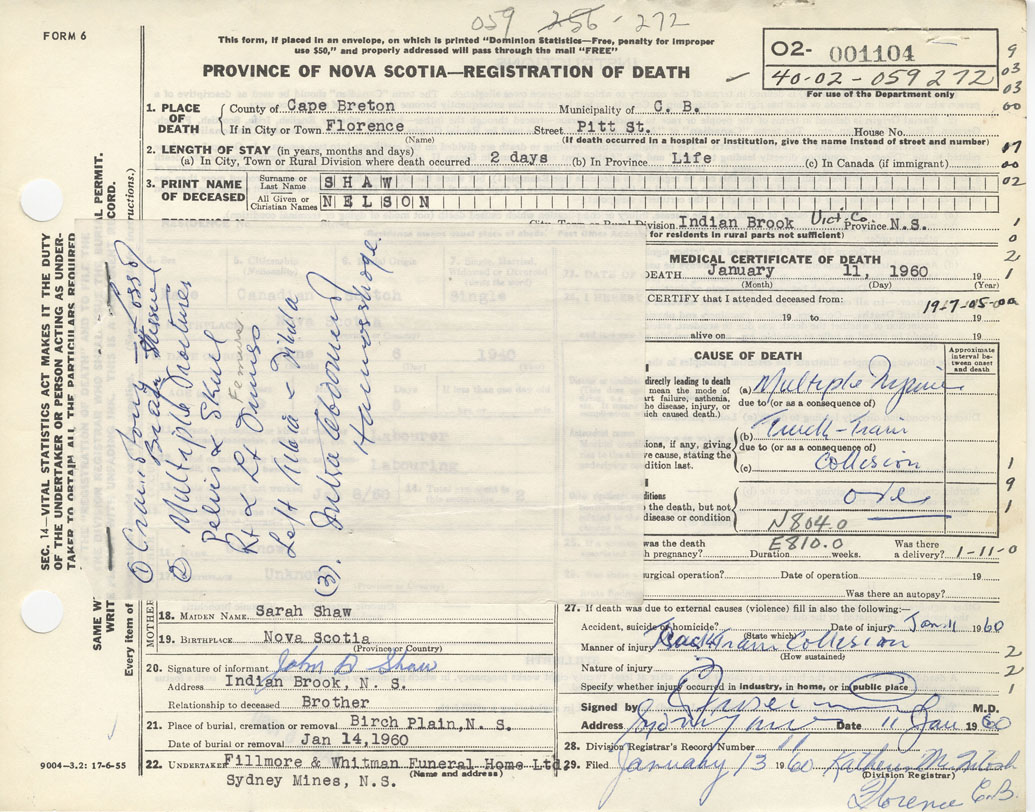 059 256-272
FORM 6
This form, if placed in an envelope, on which is printed "Dominion Statistics—Free, penalty for improper
use $50," and properly addressed will pass through the mail "FREE"
PROVINCE OF NOVA SCOTIA—REGISTRATION OF DEATH
O2- 001104
40-02-059272
For use of the Department only
1. PLACE OF DEATH
County of Cape Breton Municipality of C. B.
If in City or Town Florence Street Pitt St. House No.
(Name) (If death occurred in a hospital or Institution, give the name instead of street and number)
2. LENGTH OF STAY (in years, months and days)
(a) In City, Town or Rural Division where death occurred 2 days (b) In Province Life (c) In Canada (if immigrant)
3. PRINT NAME OF DECEASED
Surname or Last Name SHAW
All Given or Christian Names NELSON
Division Indian Brook Vict. Co. Province N.S.
for residents in rural parts not sufficient)
MEDICAL CERTIFICATE OF DEATH
DEATH January 11, 1960 19
(Month) (Day) (Year)
CERTIFY that I attended deceased from:
19-7-05-00
19 to 19
alive on 19
CAUSE OF DEATH
Approximate interval between onset and death
directly leading to death
(a) Multiple Injuries
an the mode of
rt failure, asthenia,
he disease, injury, or
hich caused death.)
due to (or as a consequence of)
(b) Truck-Train
ions, if any, giving
ve cause, stating the
dition last.
due to (or as a consequence of)
(c) Collision
ditions
the death, but not
disease or condition
N804.0
E810.0
was the death
h pregnancy? Duration weeks.
Was there a delivery? 1-11-0
urgical operation? Date of operation 19
Was there an autopsy?
(1)
Brain
(2) Multiple Fractures
Pelvis & Skull
Rt & Lt Femurs
Left
(3). Intra Abdominal
Haemorrhage.
MOTHER
18. MAIDEN NAME Sarah Shaw
19. BIRTHPLACE Nova Scotia
(Province or Country)
20. Signature of informant John D Shaw
Address Indian Brook, N. S.
Relationship to deceased Brother
21. Place of burial, cremation or removal Birch Plain, N. S.
Date of burial or removal Jan 14, 1960
22. UNDERTAKER Fillmore & Whitman Funeral Home Ltd.
(Name and address)
Sydney Mines, N.S.
27. If death was due to external causes (violence) fill in also the following:—
Accident, suicide or homicide? Date of injury Jan. 11 1960
(State which)
Manner of injury Truck Train Collision
(How sustained)
Nature of injury
Specify whether injury occurred in industry, in home, or in public place
Signed by M.D.
Address Sydney Mines Date 11 Jan 1960
28. Division Registrar's Record Number
29. Filed January 13 1960
(Division Registrar)
Florence C.B.
9004-3.2: 17-6-55
SEC. 14—VITAL STATISTICS ACT MAKES IT THE DUTY
OF THE UNDERTAKER OR PERSON ACTING AS UNDER-
TAKER TO OBTAIN ALL THE PARTICULARS REQUIRED
SAME W
WRIT
L PERMIT.
CORD.
Every item of